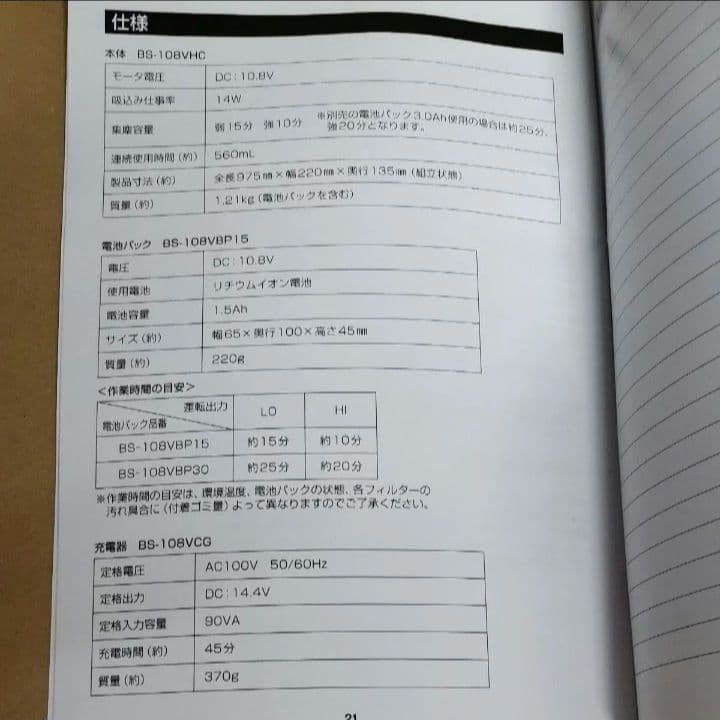 仕様
本体 BS-108VHC
モータ電圧 DC:10.8V
吸込み仕事率 14W
集塵容量 弱15分 強10分 ※別売の電池パック3.0Ah使用の場合は約25分、
強20分となります。
連続使用時間(約) 560mL
製品寸法(約) 全長975㎜×幅220㎜×奥行135㎜(組立状態)
質量(約) 1.21kg(電池パックを含む)
電池パック BS-108VBP15
電圧 DC:10.8V
使用電池 リチウムイオン電池
電池容量 1.5Ah
サイズ(約) 幅65×奥行100×高さ45㎜
質量(約) 220g
<作業時間の目安>
運転出力 LO HI
電池パック品番
BS-108VBP15 約15分 約10分
BS-108VBP30 約25分 約20分
※作業時間の目安は、環境温度、電池パックの状態、各フィルターの
汚れ具合に(付着ゴミ量)よって異なりますのでご了承ください。
充電器 BS-108VCG
定格電圧 AC100V 50/60Hz
定格出力 DC:14.4V
定格入力容量 90VA
充電時間(約) 45分
質量(約) 370g
21